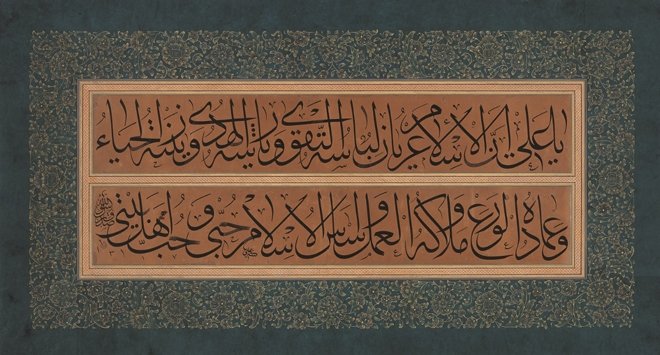 يا علي إن الإسلام عريان لباسه التقوى ورياشه الهدى وزينته الحياء
وعماده الورع وملاكه العمل وأساس الإسلام حبي وحب أهل بيتي